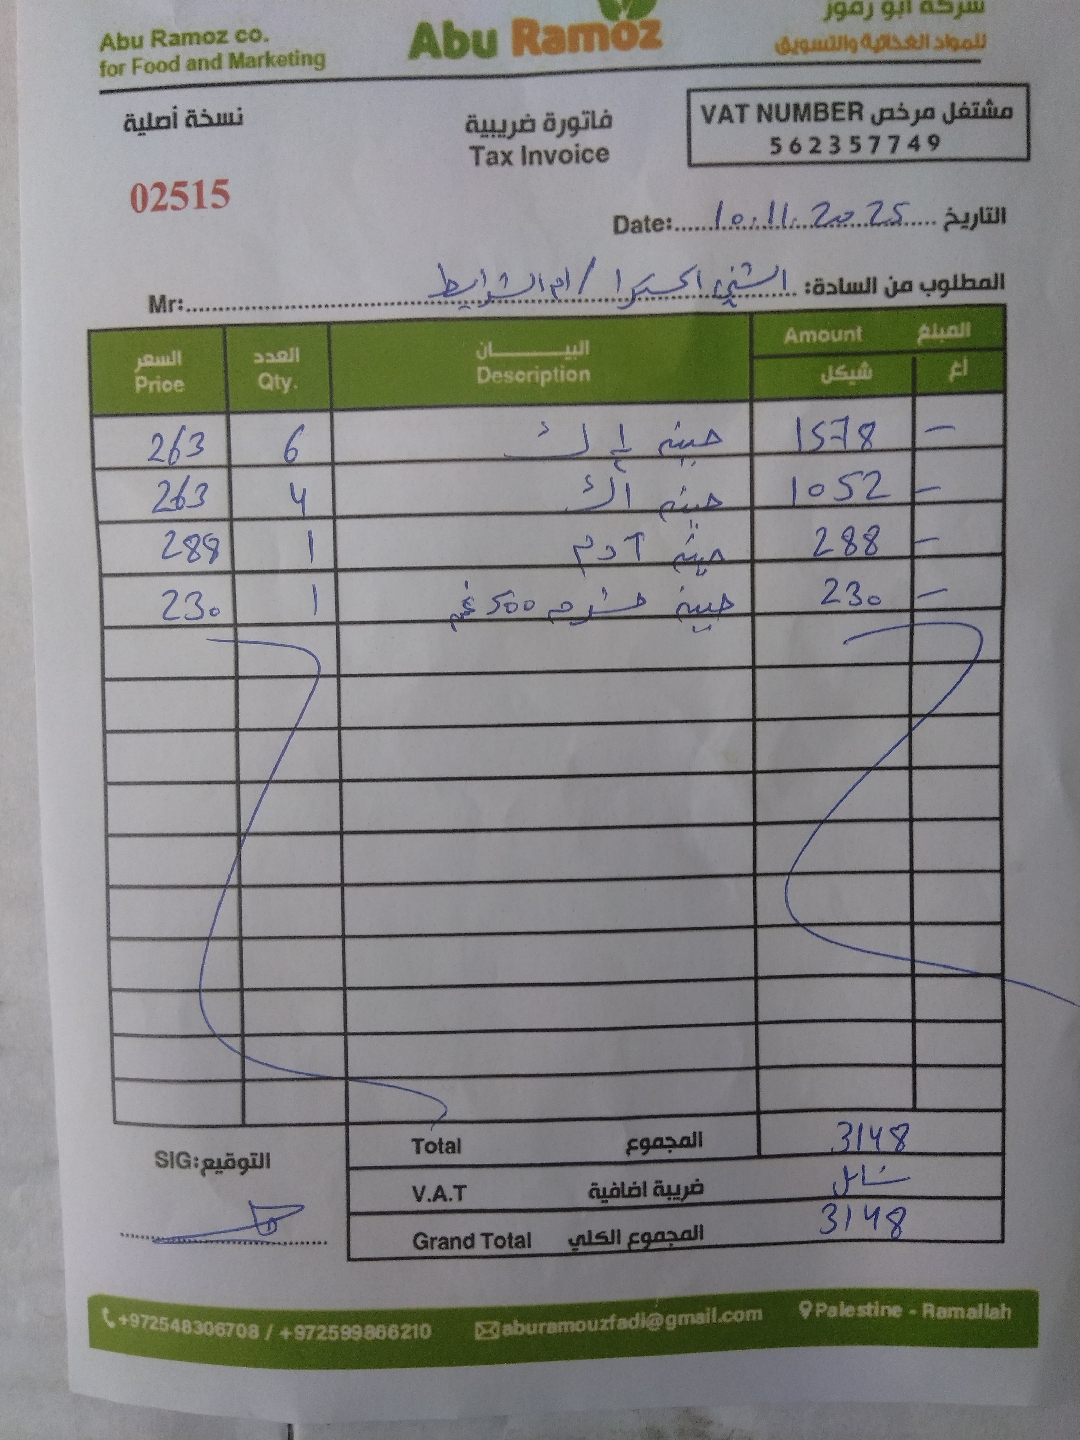 شركة أبو رموز
للمواد الغذائية والتسويق
Abu Ramoz
Abu Ramoz co.
for Food and Marketing
نسخة أصلية
فاتورة ضريبية
Tax Invoice
VAT NUMBER مشتغل مرخص
562357749
02515
Date: 10.11.2025 التاريخ
المطلوب من السادة: / ام الشرايط Mr:
السعر العدد البيـــــــان Amount المبلغ
Price Qty. Description شيكل أغ
263 6 جبنة 1578 -
263 4 جبنة 1052 -
288 1 جبنة 288 -
230 1 جبنة 500 غم 230 -
Total المجموع 3148
V.A.T ضريبة اضافية شامل
Grand Total المجموع الكلي 3148
SIG: التوقيع
+972548306708 / +972599866210 aburamouzfadi@gmail.com Palestine - Ramallah